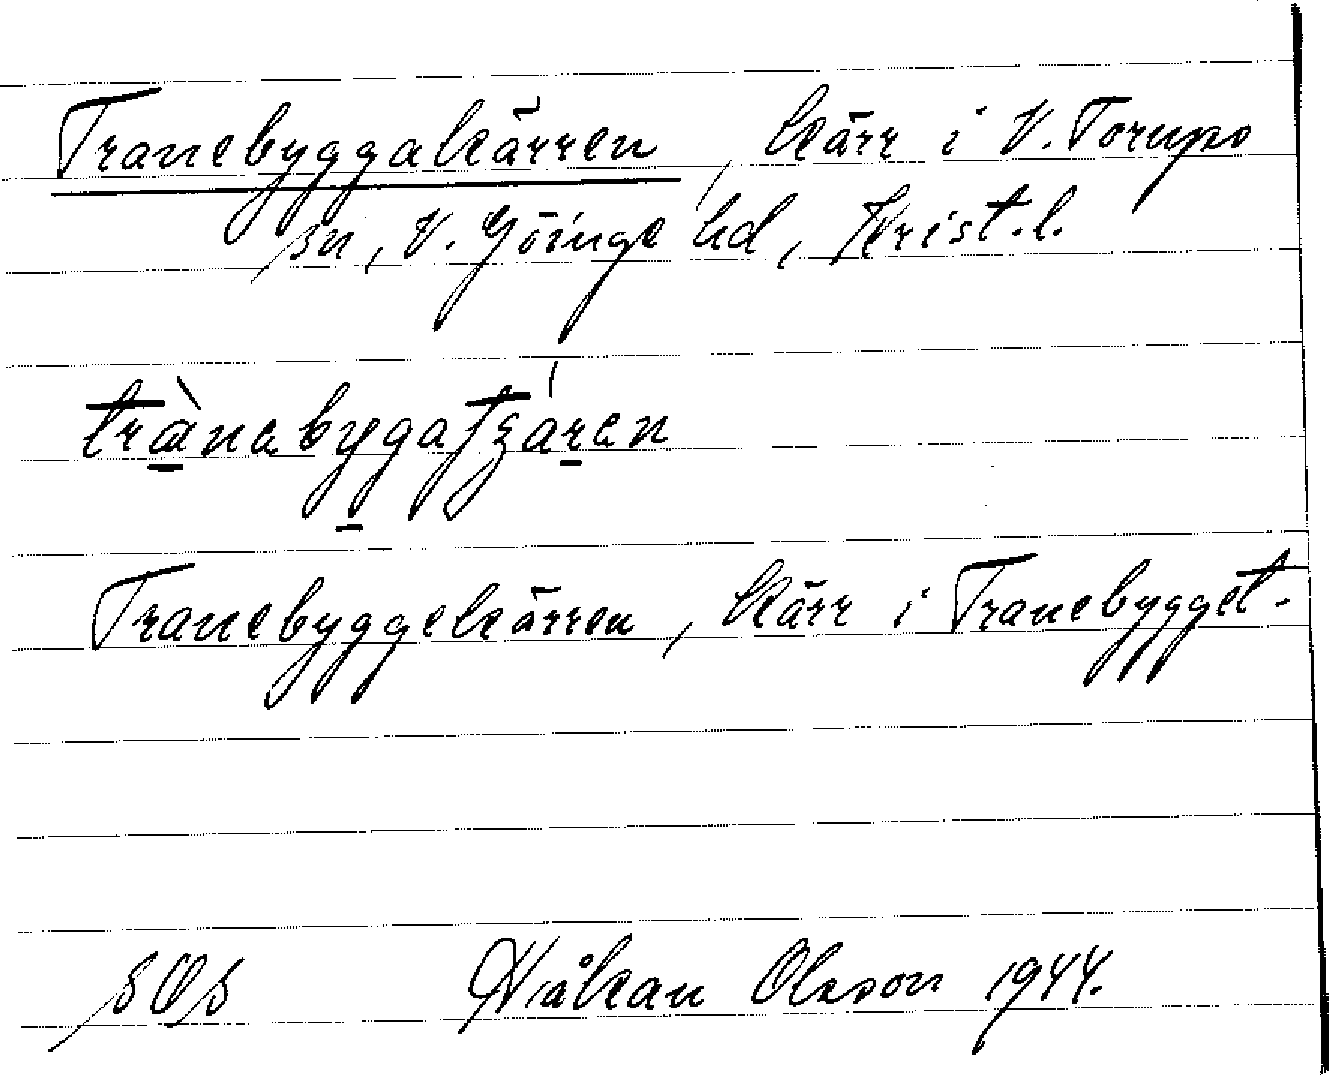 Tranebyggakärren, kärr i V. Torups
sn, V. Göinge hd, Krist. l.
Tranebyggekärren, kärr i Tranebygget.
Håkan Olsson 1944.